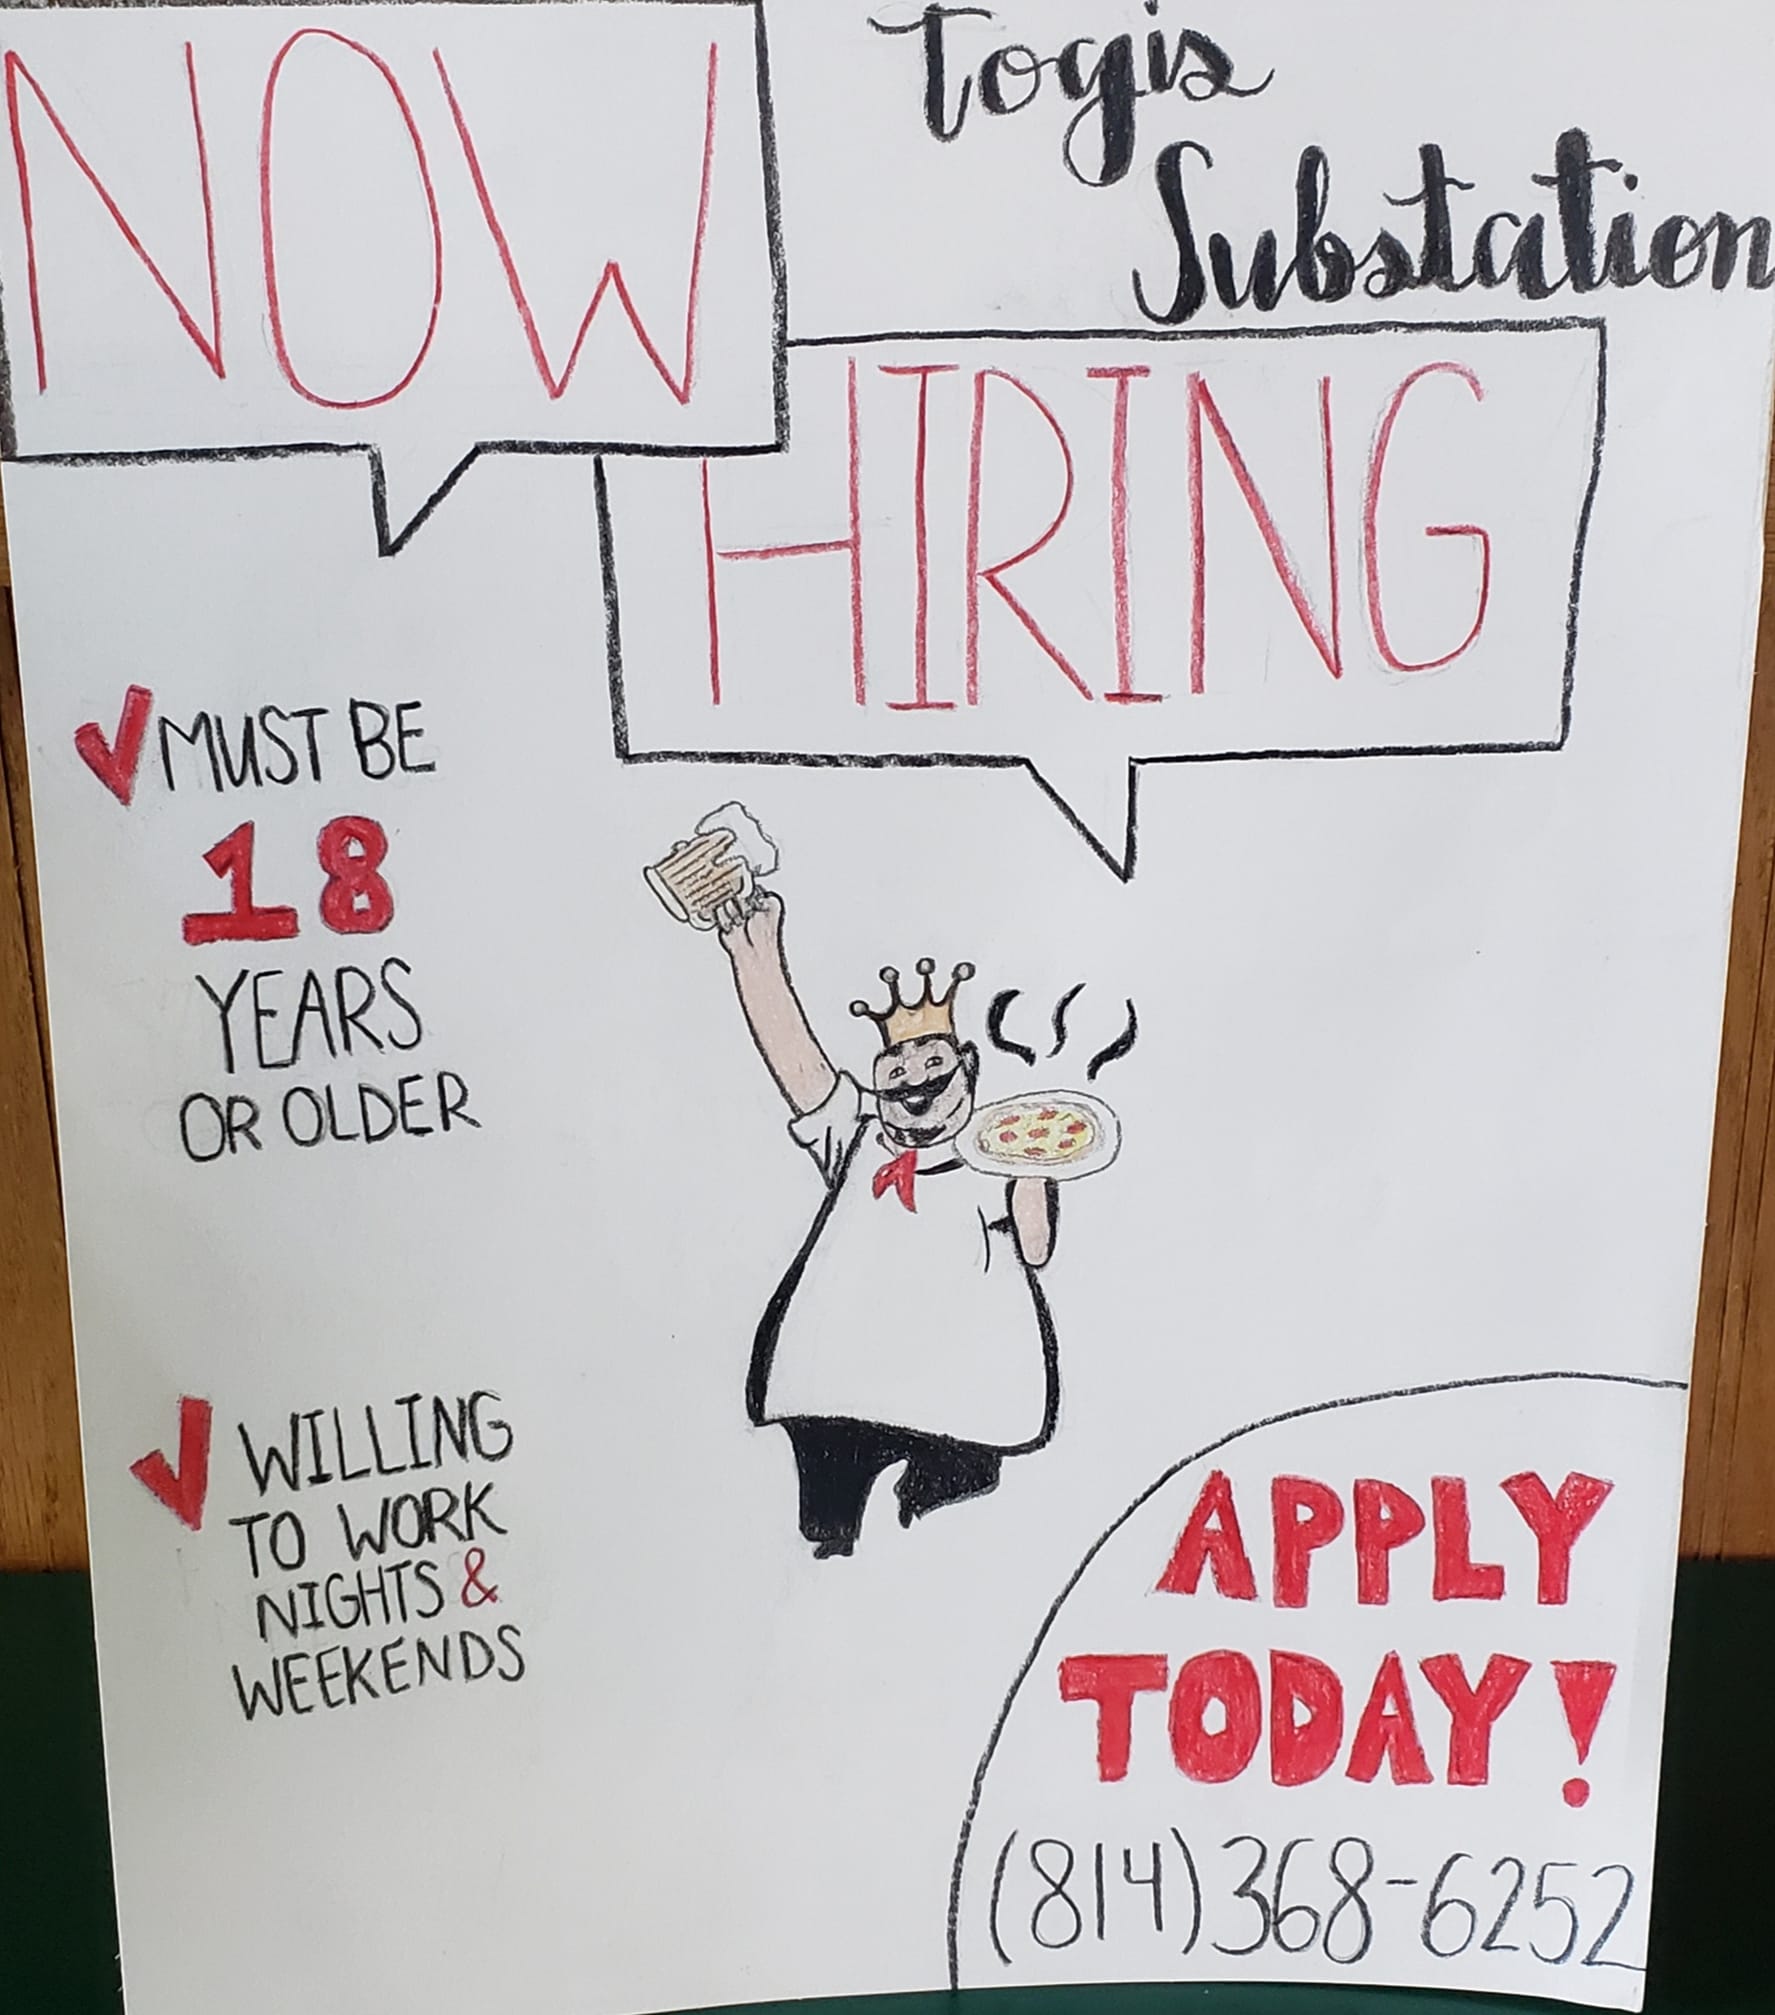 NOW
Togis
Substation
HIRING
MUST BE
18
YEARS
OR OLDER
WILLING
TO WORK
NIGHTS &
WEEKENDS
APPLY
TODAY!
(814)368-6252